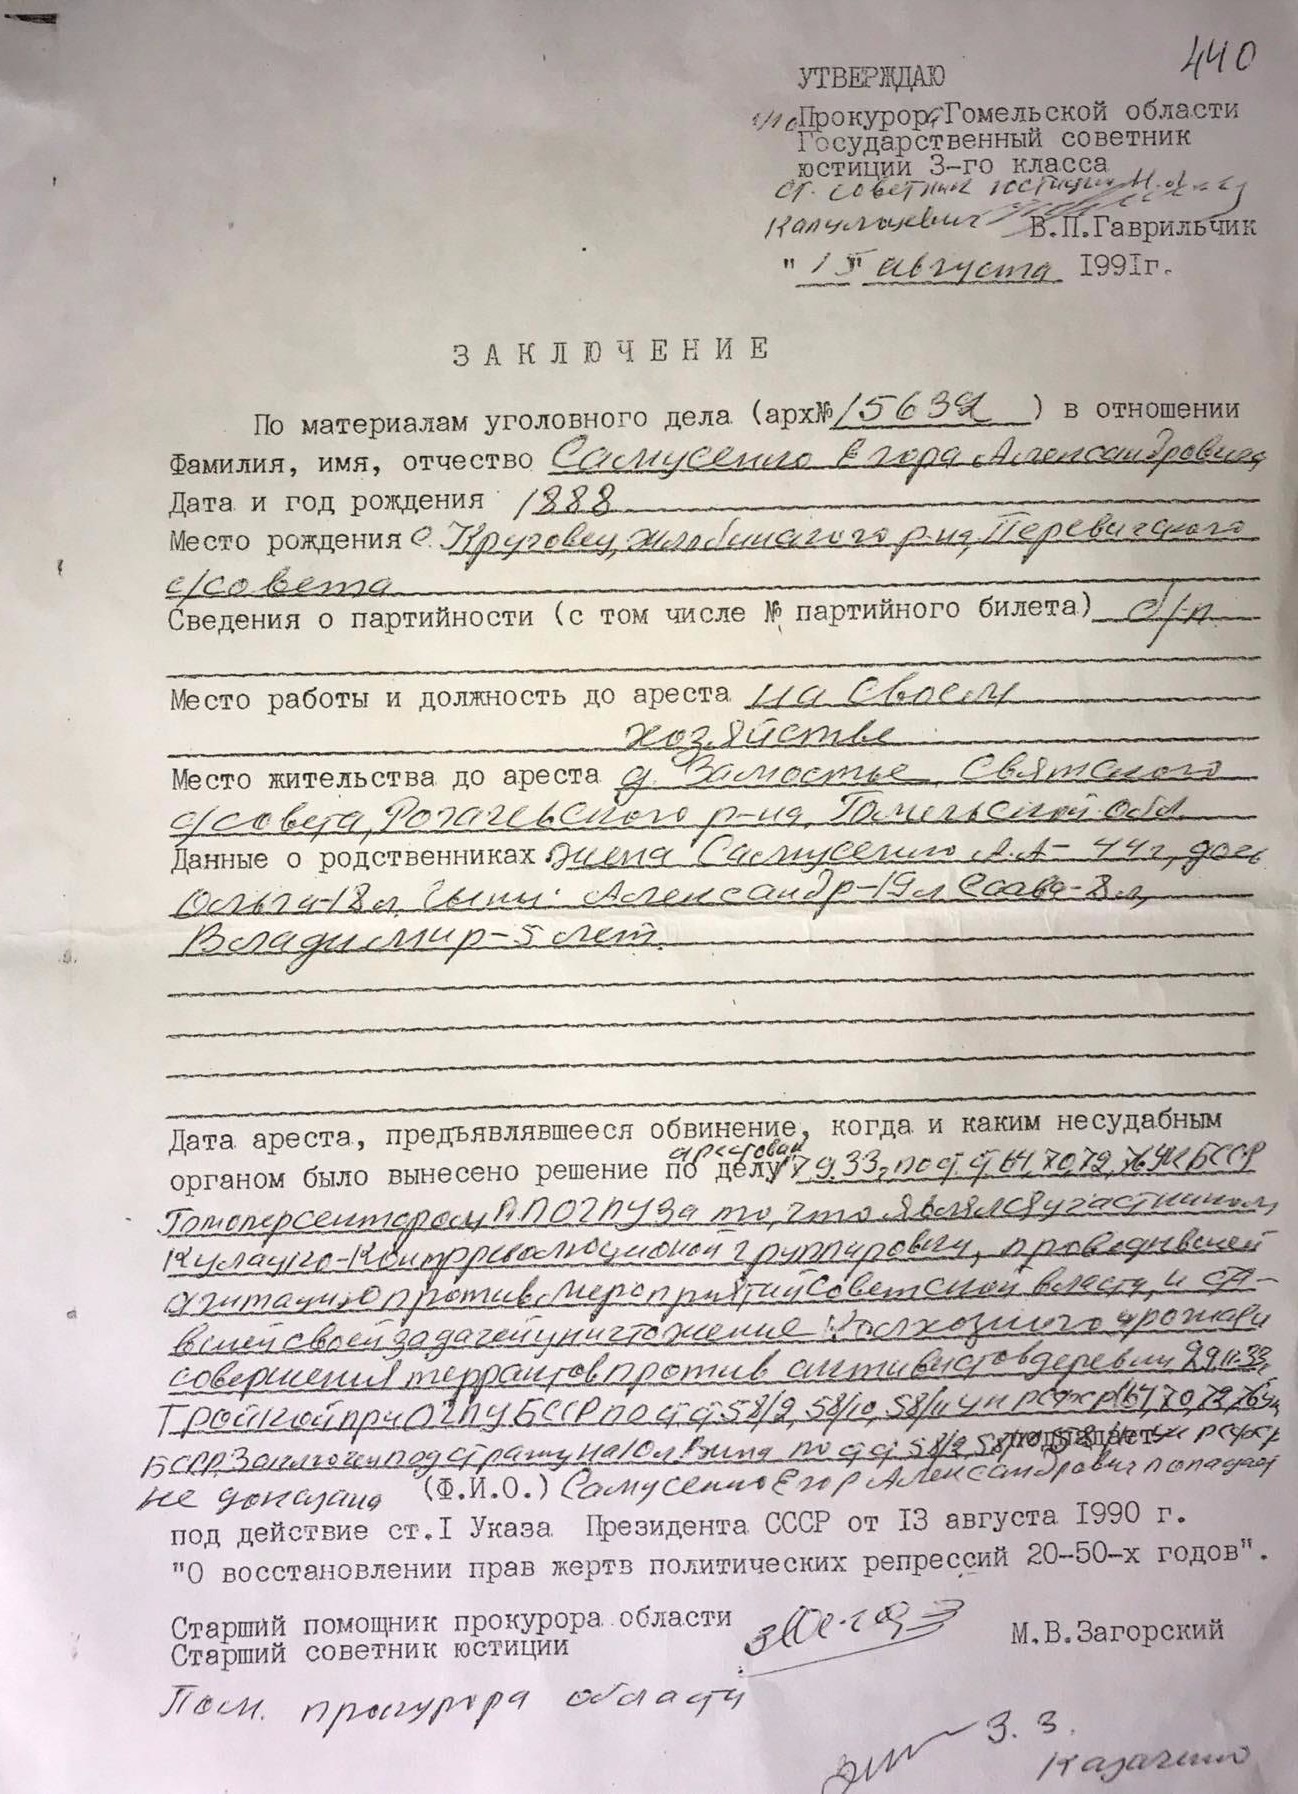 440
УТВЕРЖДАЮ
Прокурор Гомельской области
Государственный советник
юстиции 3-го класса
ст. советник юстиции
В.П.Гаврильчик
"15" августа 1991г.
ЗАКЛЮЧЕНИЕ
По материалам уголовного дела (арх№ 15632) в отношении
Фамилия, имя, отчество Самусенко Егора Александровича
Дата и год рождения 1888
Место рождения с. Круговец, Жлобинского р-на, Перевичского
с/совета
Сведения о партийности (с том числе № партийного билета) б/п
Место работы и должность до ареста на своем
хозяйстве
Место жительства до ареста д. Замостье, Святского
с/совета, Рогачевского р-на, Гомельской обл.
Данные о родственниках жена Самусенко А.А - 44 г, дочь
Ольга-18 л, сыны: Александр-19 л -8 л,
Владимир-5 лет.
Дата ареста, предъявлявшееся обвинение, когда и каким несудабным
арестован
органом было вынесено решение по делу 7.9.33, по ст.ст 64, 70, 72, 76 УК БССР
Гомоперсектором ПП ОГПУ за то, что являлся участником
Кулацко-Контрреволюционой группировки, проводившей
агитацию против мероприятий Советской власти, и ста-
вшей своей задачей уничтожение колхозного урожая
совершения террактов против активистов деревни 29.11.33,
Тройкой при ОГПУ БССР по ст.ст 58/9, 58/10, 58/11 ук рсфср (64, 70, 72, 76 ук
БССР. Заключен под стражу на 10 л Вина по ст.ст 58/9, 58/10, 58/11 ук рсфср
не доказана (Ф.И.О.) Самусенко Егор Александрович попадает
под действие ст.I Указа Президента СССР от 13 августа 1990 г.
"О восстановлении прав жертв политических репрессий 20-50-х годов".
Старший помощник прокурора области
Старший советник юстиции М.В.Загорский
Пом. прокурора области
З. З.
Казаченко